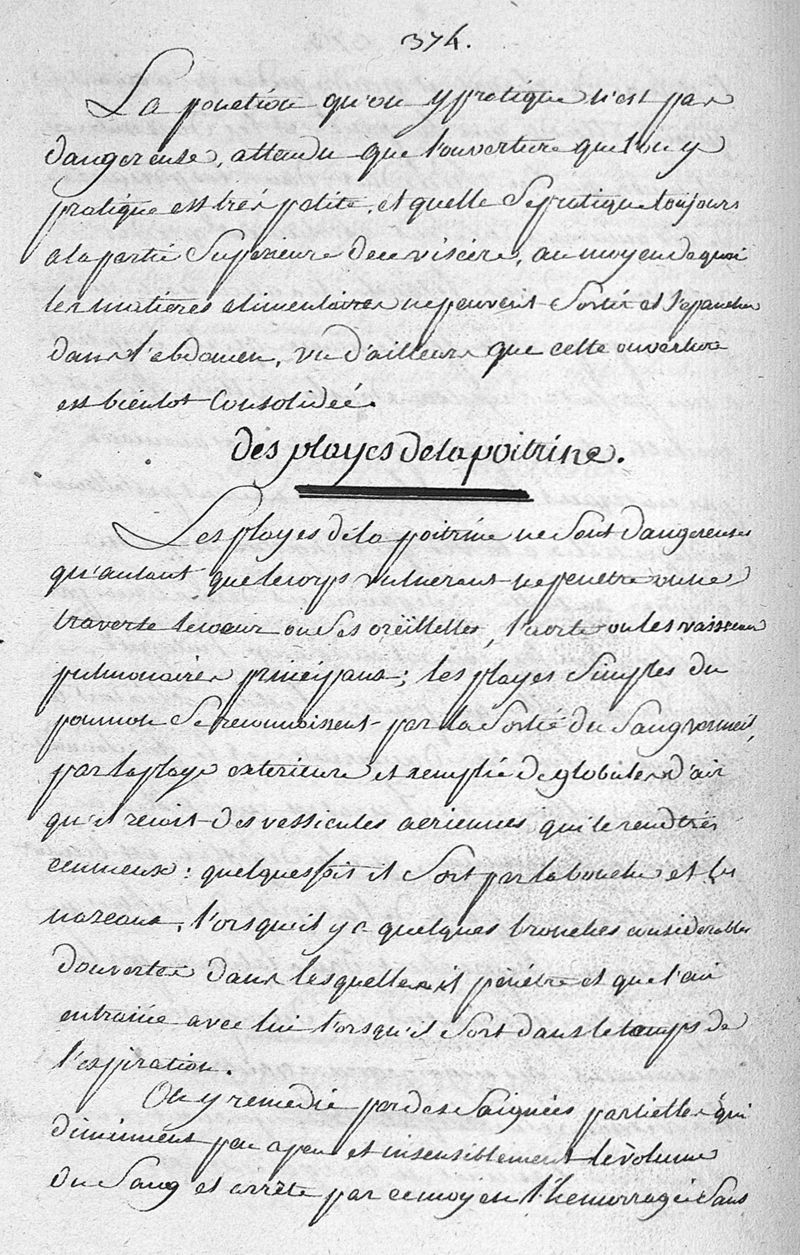 374.
La ponction qu'on y pratique n'est pas
dangereuse, attendu que l'ouverture que l'on y
pratique est tres petite, et quelle se pratique toujours
a la partie Superieure de ce viscère, au moyen de quoi
les matières alimentaires ne peuvent Sortir et s'epancher
dans l'ebdomen, vu d'ailleurs que cette ouverture
est bientot Consolidée.
des playes de la poitrine.
Les playes de la poitrine ne Sont dangereuses
qu'autant que le corps vulnerant ne penetre ou ne
traverse le cœur ou Ses oreillettes, l'aorte ou les vaisseaux
pulmonaires principaux; les playes Simples du
poumon Se reconnoissent par la Sortie du Sang vermeil,
par la playe exterieure et remplie de globules d'air
qu'il recoit des vessicules aeriennes qui le rend très
ecumeux: quelques fois il Sort par la bouche et les
nazeaux, l'orsqu'il y a quelques bronches considerables
d'ouvertes dans lesquelles il penétre et que l'air
entraine avec lui l'orsqu'il Sort dans le temps de
l'expiration.
On y remedie par des Saignées partielles qui
diminuent peu a peu et insensiblement le volume
du Sang et arrête par ce moyen l'hemorragie Sans